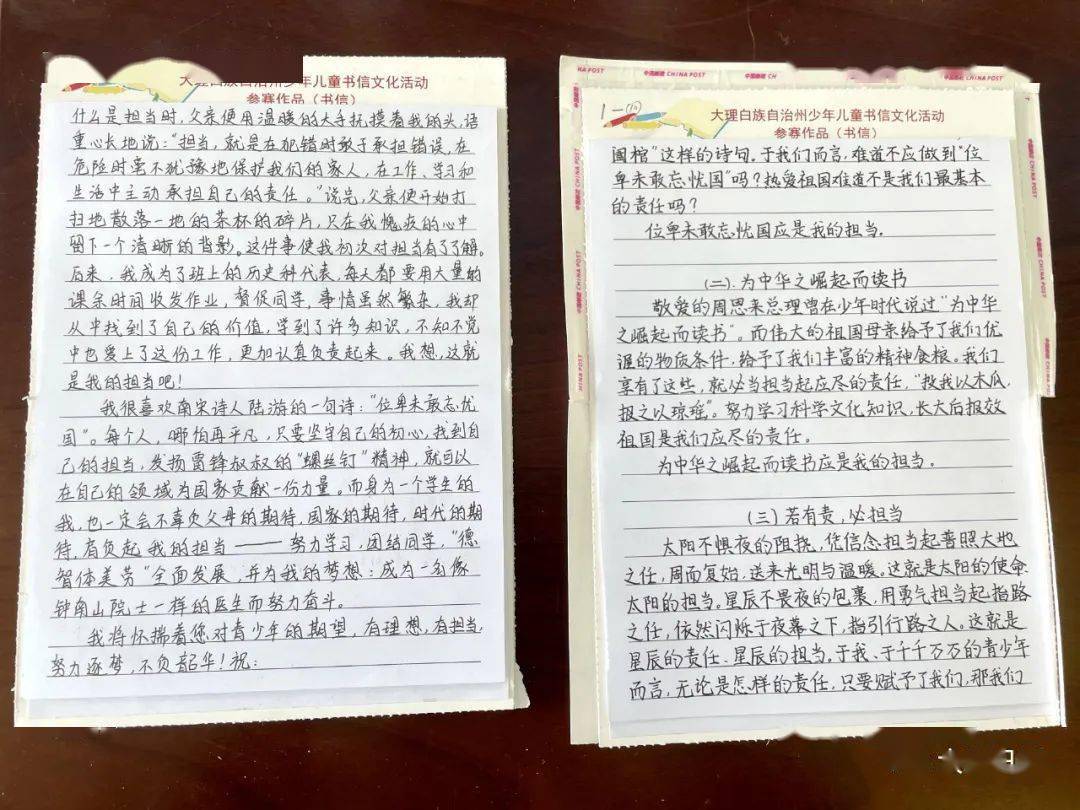 大理白族自治州少年儿童书信文化活动
参赛作品（书信）
什么是担当时，父亲便用温暖的大手抚摸着我的头，语
重心长地说：“担当，就是在犯错时敢于承担错误，在
危险时毫不犹豫地保护我们的家人，在工作、学习和
生活中主动承担自己的责任。”说完，父亲便开始打
扫地散落一地的茶杯的碎片，只在我愧疚的心中
留下一个清晰的背影。这件事使我初次对担当有了了解。
后来，我成为了班上的历史科代表，每天都要用大量的
课余时间收发作业，督促同学，事情虽然繁杂，我却
从中找到了自己的价值，学到了许多知识，不知不觉
中也爱上了这份工作，更加认真负责起来。我想，这就
是我的担当吧！
我很喜欢南宋诗人陆游的一句诗：“位卑未敢忘忧
国”。每个人，哪怕再平凡，只要坚守自己的初心，找到自
己的担当，发扬雷锋叔叔的“螺丝钉”精神，就可以
在自己的领域为国家贡献一份力量。而身为一个学生的
我，也一定会不辜负父母的期待，国家的期待，时代的期
待，肩负起我的担当——努力学习，团结同学，“德
智体美劳”全面发展，并为我的梦想：成为一名像
钟南山院士一样的医生而努力奋斗。
我将怀揣着您对青少年的期望，有理想，有担当，
努力逐梦，不负韶华！祝：
NA POST 中国邮政 CHINA POST 中国邮政 CH
中国邮政 CHINA POST
大理白族自治州少年儿童书信文化活动
参赛作品（书信）
围棺”这样的诗句。于我们而言，难道不应做到“位
卑未敢忘忧国”吗？热爱祖国难道不是我们最基本
的责任吗？
位卑未敢忘忧国应是我的担当。
（二）.为中华之崛起而读书
敬爱的周恩来总理曾在少年时代说过“为中华
之崛起而读书”。而伟大的祖国母亲给予了我们优
渥的物质条件，给予了我们丰富的精神食粮。我们
享有了这些，就必当担当起应尽的责任，“投我以木瓜，
报之以琼瑶”。努力学习科学文化知识，长大后报效
祖国是我们应尽的责任。
为中华之崛起而读书应是我的担当。
（三）若有责，必担当
太阳不惧夜的阻挠，凭信念担当起普照大地
之任，周而复始，送来光明与温暖。这就是太阳的使命，
太阳的担当。星辰不畏夜的包裹，用勇气担当起指路
之任，依然闪烁于夜幕之下，指引行路之人。这就是
星辰的责任、星辰的担当。于我、于千千万万的青少年
而言，无论是怎样的责任，只要赋予了我们，那我们